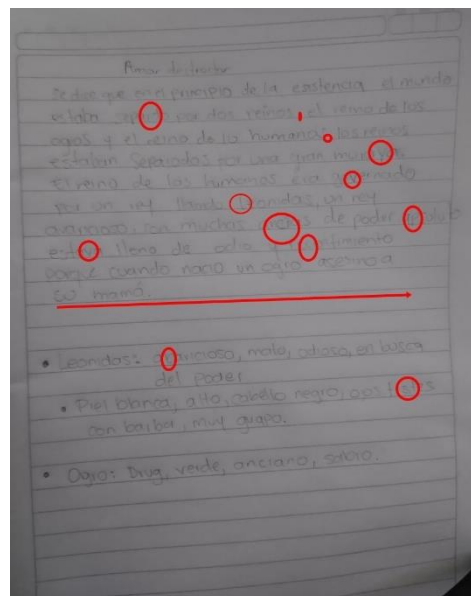 Amor destructor
Se dice que en el principio de la existencia el mundo
estaba por dos reinos, el reino de los
ogros y el reino de la humana. los reinos
estaban separados por una gran
El reino de los humanos era
por un rey llamado Leonidas, un rey
con muchas de poder
lleno de odio y
porque cuando nacio un ogro asesino a
su mamá.
• Leonidas: malo, odioso, en busca
del poder
• Piel blanca, alto, cabello negro, ojos
con barba, muy guapo.
• Ogro: Drug, verde, anciano, sabio.